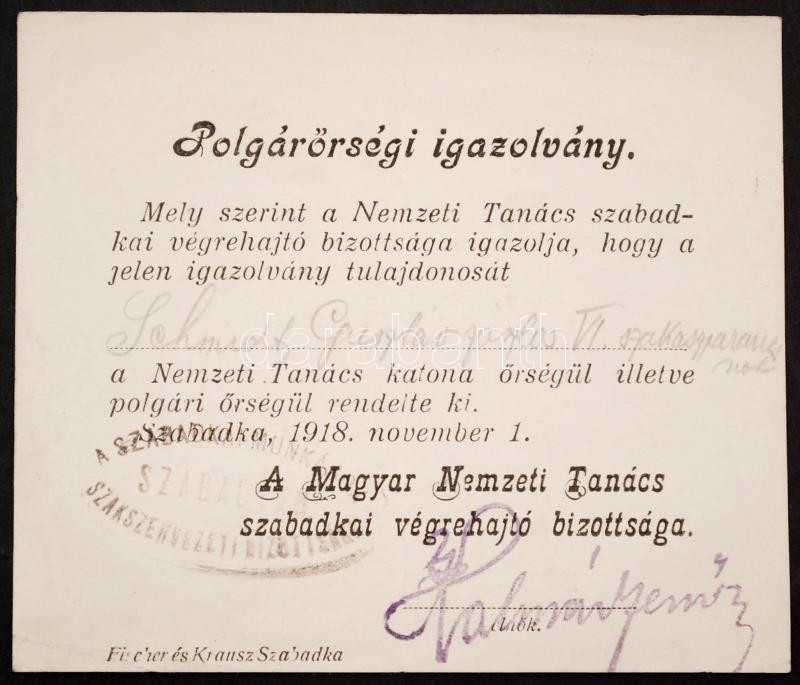 Polgárőrségi igazolvány.
Mely szerint a Nemzeti Tanács szabad-
kai végrehajtó bizottsága igazolja, hogy a
jelen igazolvány tulajdonosát
Schmidt VI. szakaszparancs
nok
a Nemzeti Tanács katona őrségül illetve
polgári őrségül rendelte ki.
Szabadka, 1918. november 1.
A SZABADKAI MUNKÁ
SZABAD
SZAKSZERVEZETI BIZOTTSÁG
A Magyar Nemzeti Tanács
szabadkai végrehajtó bizottsága.
Kalmár Jenő
elnök.
Fischer és Krausz Szabadka